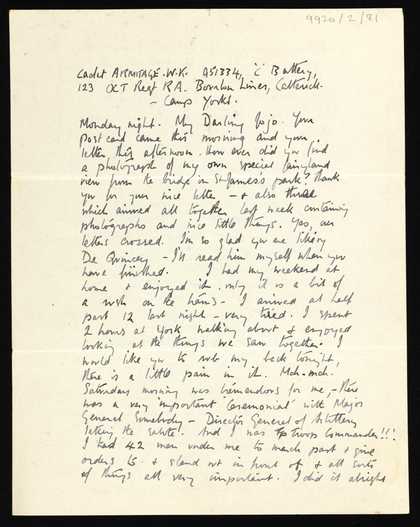 9920/2/81
Cadet ARMITAGE. W.K. 951334, 'C' Battery,
123 OCT Regt R.A. Bourlon Lines, Catterick
- Camp Yorks.
Monday night. My Darling Jojo. Your
postcard came this morning and your
letter this afternoon. How ever did you find
a photograph of my own special fairyland
view from the bridge in St James's park? Thank
you for your nice letter - & also three
which arrived all together last week containing
photographs and nice little things. Yes, our
letters crossed. I'm so glad you are liking
De Quincey - I'll read him myself when you
have finished. I had my weekend at
home & enjoyed it. only it is a bit of
a rush on the trains - I arrived at half
past 12 last night - very tired. I spent
2 hours at York walking about & enjoyed
looking at the things we saw together. I
would like you to rub my back tonight,
there is a little pain in it. Mch-mch.
Saturday morning was tremendous for me, - there
was a very important 'ceremonial' with Major
General Somebody - Director General of Artillery
taking the salute! And I was troops Commander!!!
I had 42 men under me to march past & give
orders to & stand out in front of & all sorts
of things all very important. I did it alright